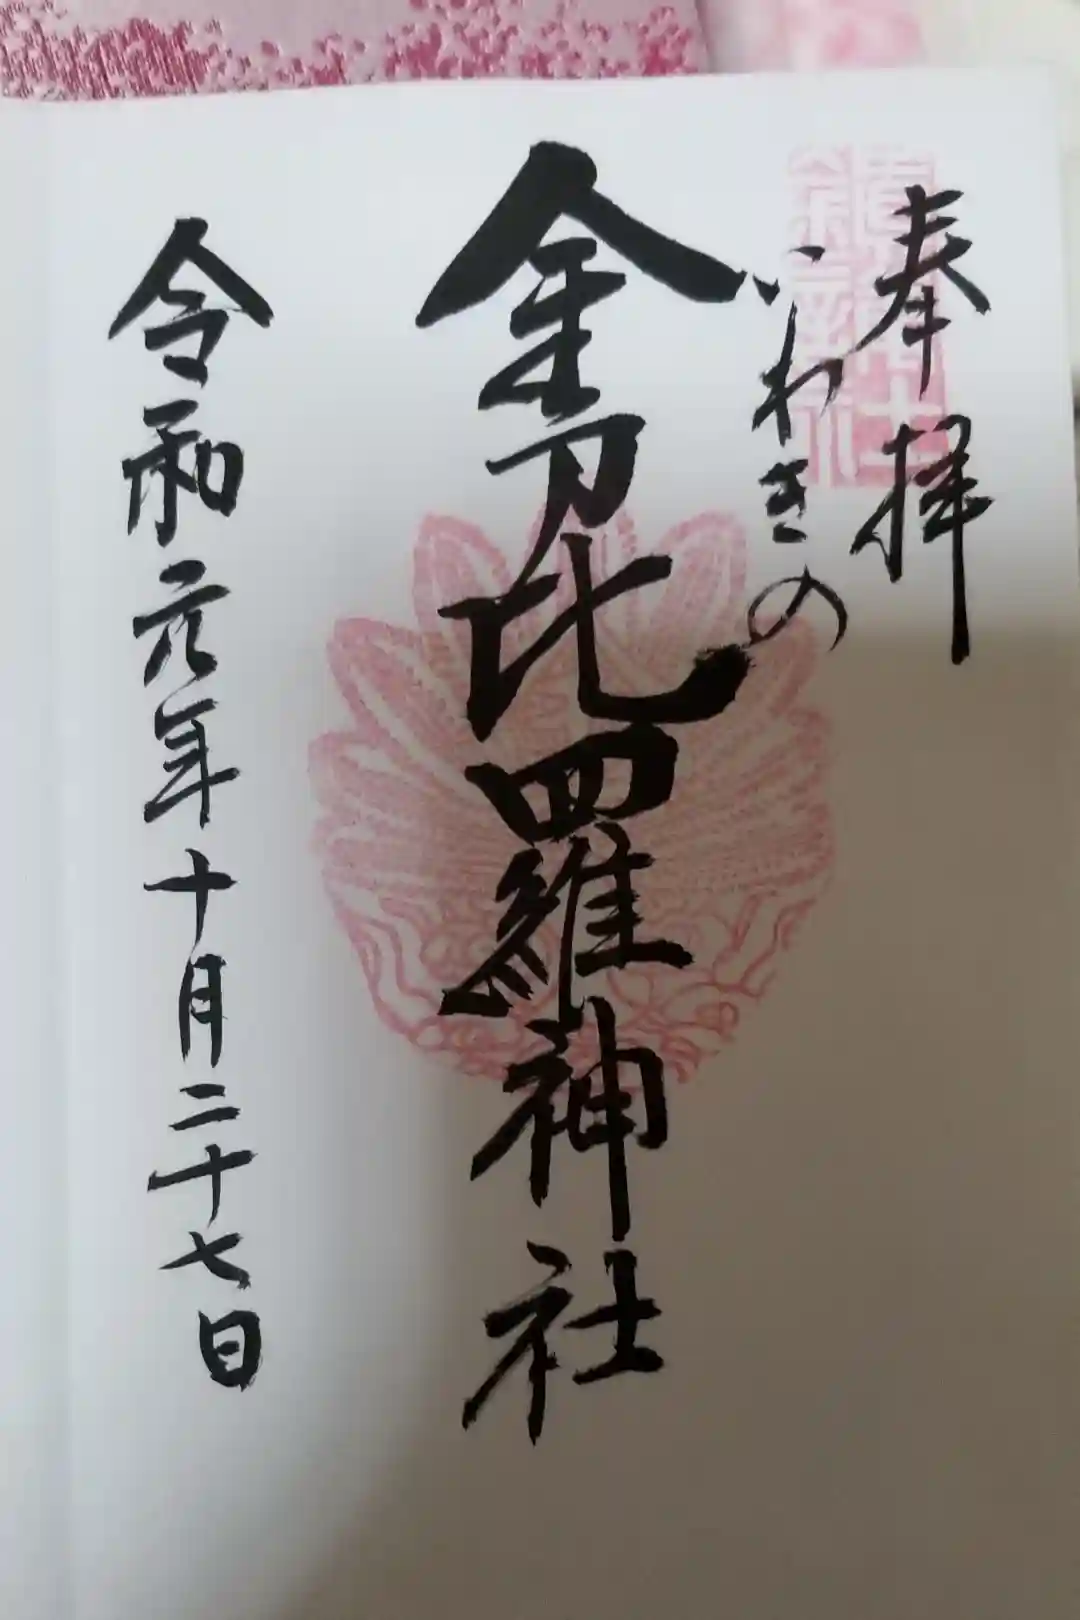 奉拝
いわきの
金刀比羅神社
令和元年十月二十七日